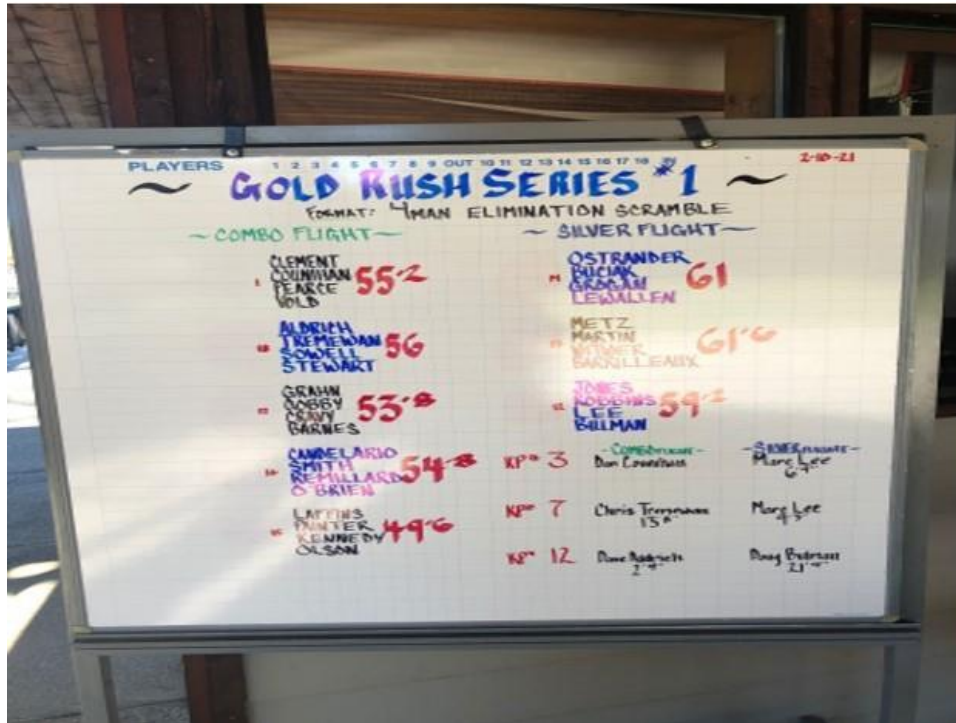 PLAYERS 1 2 3 4 5 6 7 8 9 OUT 10 11 12 13 14 15 16 17 18
2-10-21
~ GOLD RUSH SERIES #1 ~
FORMAT: 4MAN ELIMINATION SCRAMBLE
~COMBO FLIGHT~
CLEMENT
COUNIHAN
PEARCE
VOLD
55.2
ALDRICH
TREMEWAN
SOWELL
STEWART
56
GRAHN
CRAVY
BARNES
53.8
CANDELARIO
SMITH
REMILLARD
O'BRIEN
54.8
LAFFINS
PAINTER
KENNEDY
OLSON
49.6
~SILVER FLIGHT~
OSTRANDER
BUCIAK
GROGAN
LEWALLEN
61
METZ
MARTIN
BARRILLEAUX
61.6
JONES
ROBBINS
LEE
BILLMAN
59.2
-COMBO FLIGHT- -SILVER FLIGHT-
KP# 3 Dan Counihan Marc Lee
KP# 7 Chris Tremewan Marc Lee
KP# 12 Dave Aldrich Doug